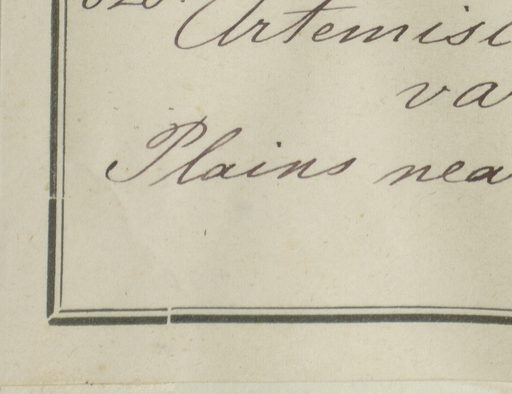 Artemisi
va
Plains nea